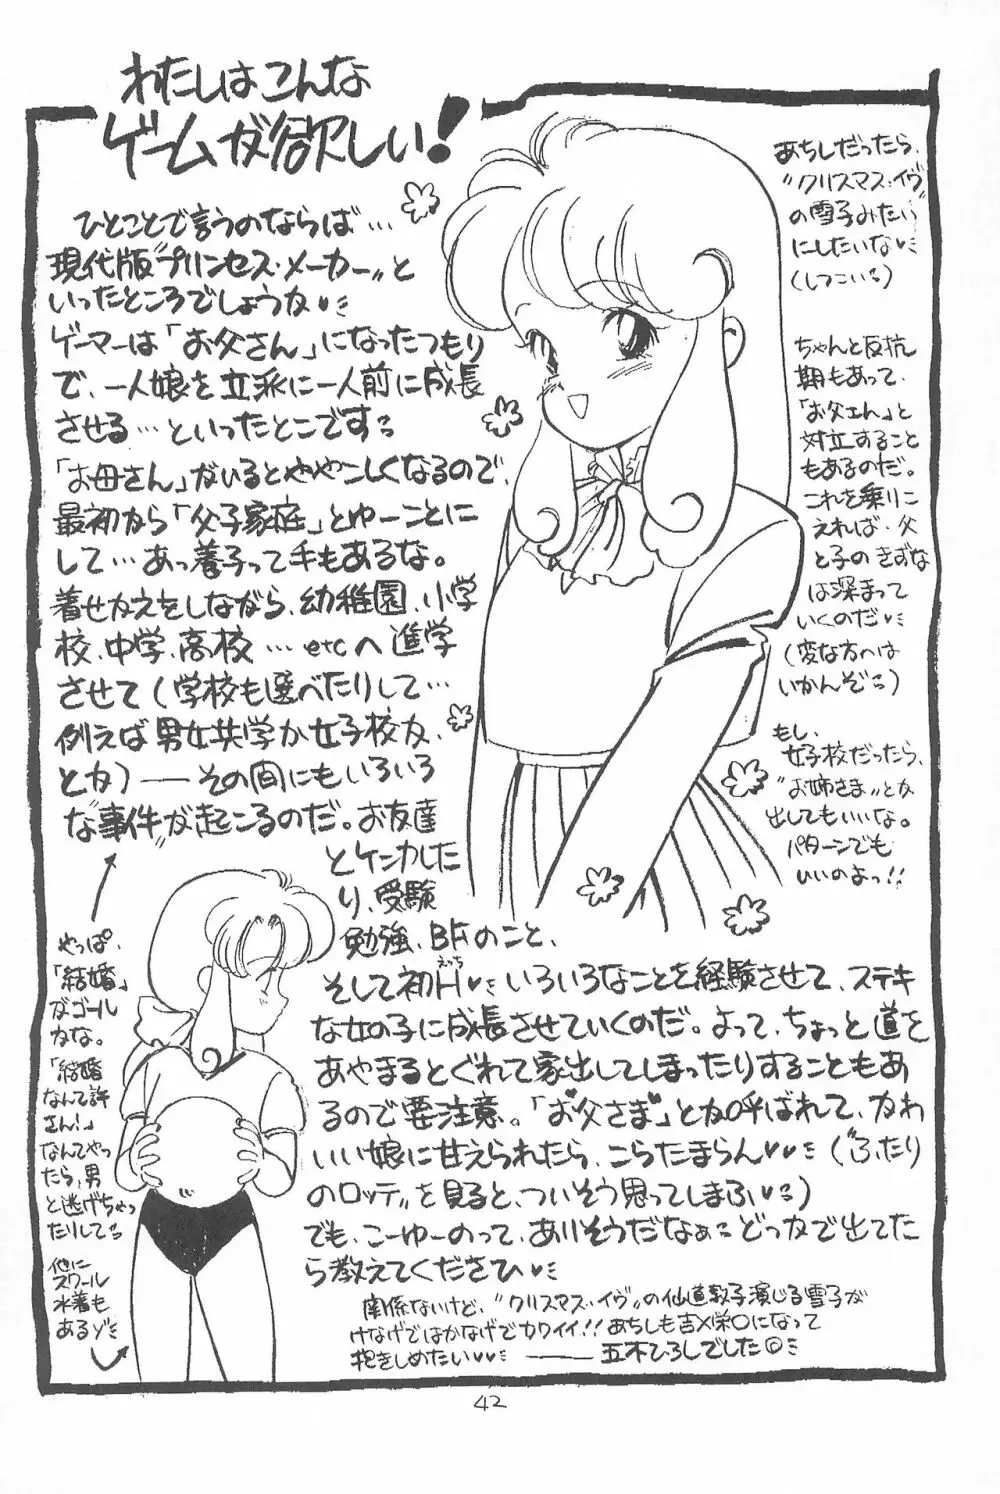 わたしはこんな
ゲームが欲しい!
ひとことで言うのならば…
現代版"プリンセス・メーカー"と
いったところでしょうか
ゲーマーは「お父さん」になったつもり
で、一人娘を立派に一人前に成長
させる…といったとこです
「お母さん」がいるとややこしくなるので、
最初から「父子家庭」とゆーことに
して…あっ養子って手もあるな。
着せかえをしながら、幼稚園、小学
校、中学、高校…etcへ進学
させて(学校も選べたりして…
例えば男女共学か女子校か、
とか)──その間にもいろいろ
な"事件"が起こるのだ。お友達
とケンカした
り、受験
勉強、BFのこと、
そして初H♥いろいろなことを経験させて、ステキ
な女の子に成長させていくのだ。よって、ちょっと道を
あやまるとぐれて家出してしまったりすることもあ
るので要注意。「お父さま」とか呼ばれて、かわ
いい娘に甘えられたら、こらたまらん♥♥(“ふたり
のロッテ”を見ると、ついそう思ってしまふ♥)
でも、こーゆーのって、ありそうだなぁ どっかで出てた
ら教えてくださひ♥
関係ないけど、“クリスマス・イヴ”の仙道敦子演じる雪子が
けなげではかなげでカワイイ!!あちしも吉×栄○になって
抱きしめたい♥♥──五木ひろしでした
あちしだったら、
“クリスマス・イヴ”
の雪子みたい
にしたいな♥
(しつこい)
ちゃんと反抗
期もあって、
「お父さん」と
対立すること
もあるのだ。
これを乗りこ
えれば、父
と子のきずな
は深まって
いくのだ♥
(変な方へは
いかんぞ)
もし、
女子校だったら、
“お姉さま”とか
出してもいいな。
パターンでも
いいのよっ!!
やっぱ、
「結婚」
がゴール
かな。
「結婚
なんて許
さん!」
なんてやっ
たら、男
と逃げちゃっ
たりして
他に
スクール
水着も
あるゾ
えっち
42